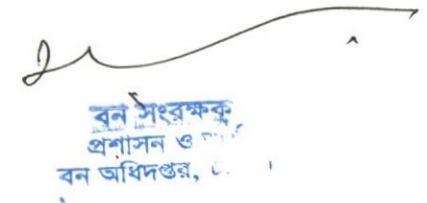 বন সংরক্ষক
প্রশাসন ও
বন অধিদপ্তর,